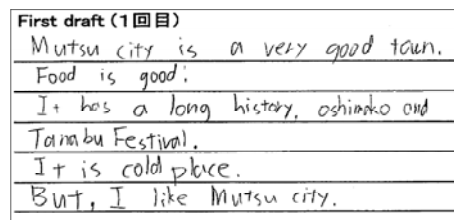 First draft (1回目)
Mutsu city is a very good town.
Food is good.
It has a long history, oshimako and
Tanabu Festival.
It is cold place.
But, I like Mutsu city.